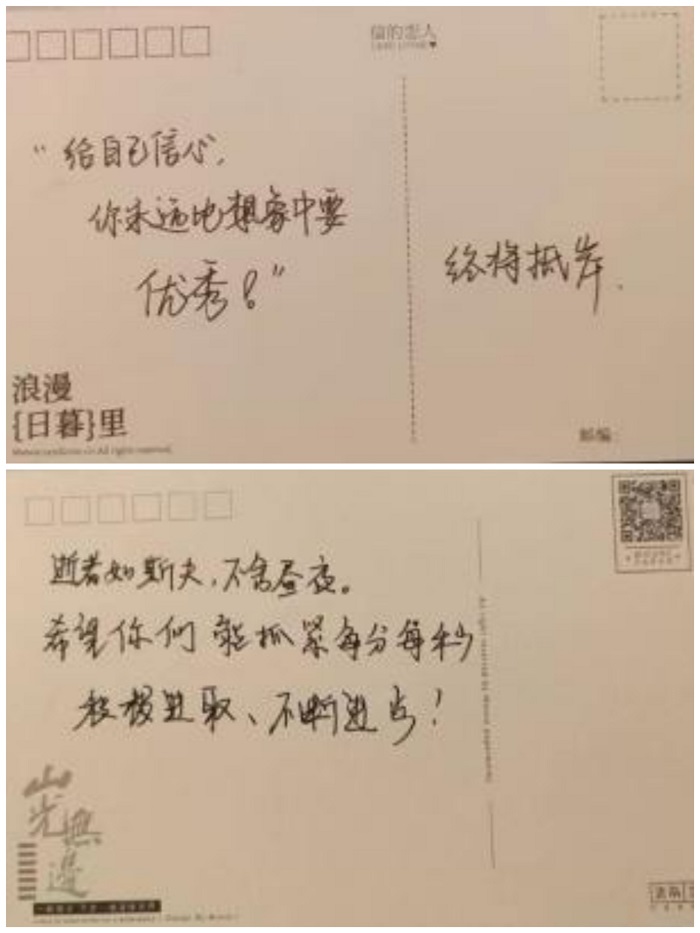 “给自己信心,
你永远比想象中要
优秀!”
终将抵岸.
浪漫
{日暮}里
邮编:
逝者如斯夫,不舍昼夜。
希望你们能抓紧每分每秒
积极进取、不断进步!
山光無邊